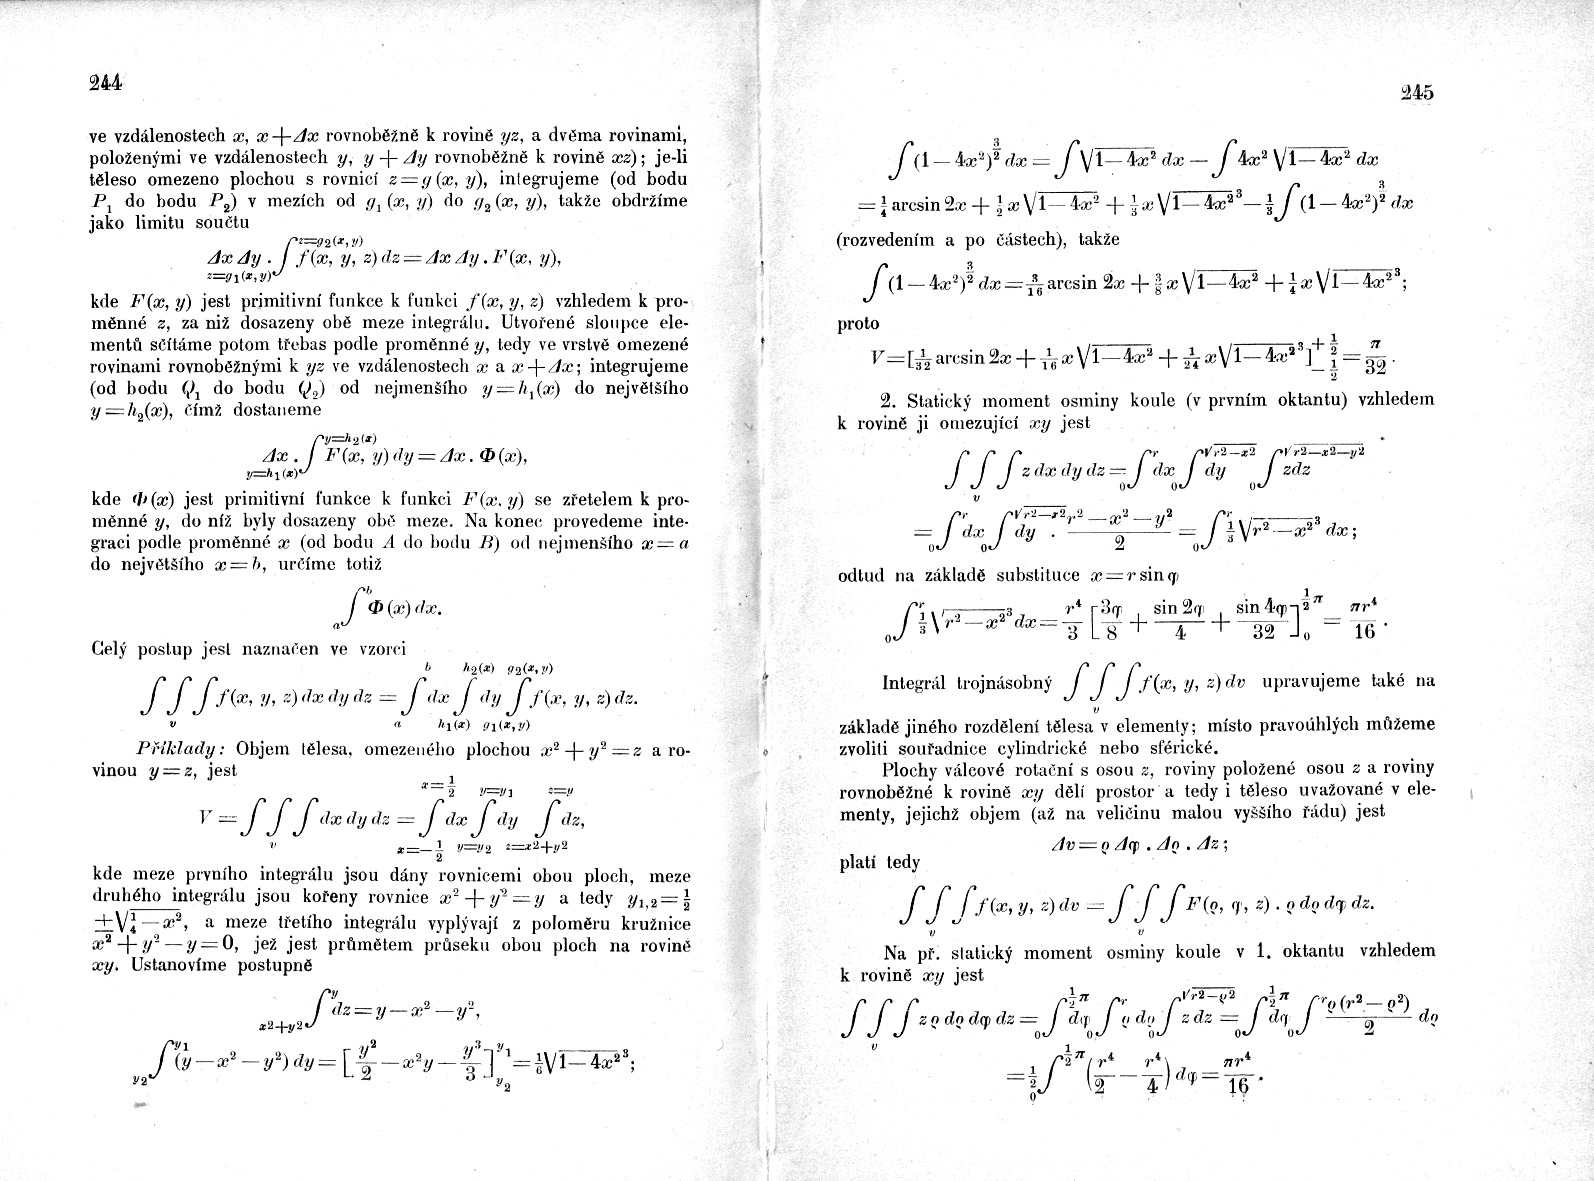 244
ve vzdálenostech x, x + Δx rovnoběžně k rovině yz, a dvěma rovinami,
položenými ve vzdálenostech y, y + Δy rovnoběžně k rovině xz); je-li
těleso omezeno plochou s rovnicí z = g (x, y), integrujeme (od bodu
P₁ do bodu P₂) v mezích od g₁ (x, y) do g₂ (x, y), takže obdržíme
jako limitu součtu
Δx Δy . ∫_{z=g₁(x, y)}^{z=g₂(x, y)} f(x, y, z) dz = Δx Δy . F(x, y),
kde F(x, y) jest primitivní funkce k funkci f(x, y, z) vzhledem k pro-
měnné z, za niž dosazeny obě meze integrálu. Utvořené sloupce ele-
mentů sčítáme potom třebas podle proměnné y, tedy ve vrstvě omezené
rovinami rovnoběžnými k yz ve vzdálenostech x a x + Δx; integrujeme
(od bodu Q₁ do bodu Q₂) od nejmenšího y = h₁(x) do největšího
y = h₂(x), čímž dostaneme
Δx . ∫_{y=h₁(x)}^{y=h₂(x)} F(x, y) dy = Δx . Φ(x),
kde Φ(x) jest primitivní funkce k funkci F(x, y) se zřetelem k pro-
měnné y, do níž byly dosazeny obě meze. Na konec provedeme inte-
graci podle proměnné x (od bodu A do bodu B) od nejmenšího x = a
do největšího x = b, určíme totiž
∫_a^b Φ(x) dx.
Celý postup jest naznačen ve vzorci
∫∫∫_v f(x, y, z) dx dy dz = ∫_a^b dx ∫_{h₁(x)}^{h₂(x)} dy ∫_{g₁(x, y)}^{g₂(x, y)} f(x, y, z) dz.
Příklady: Objem tělesa, omezeného plochou x² + y² = z a ro-
vinou y = z, jest
V = ∫∫∫_v dx dy dz = ∫_{x=−1/2}^{x=1/2} dx ∫_{y=y₂}^{y=y₁} dy ∫_{z=x²+y²}^{z=y} dz,
kde meze prvního integrálu jsou dány rovnicemi obou ploch, meze
druhého integrálu jsou kořeny rovnice x² + y² = y a tedy y₁,₂ = ½
± √(¼ − x²), a meze třetího integrálu vyplývají z poloměru kružnice
x² + y² − y = 0, jež jest průmětem průseku obou ploch na rovině
xy. Ustanovíme postupně
∫_{x²+y²}^{y} dz = y − x² − y²,
∫_{y₂}^{y₁} (y − x² − y²) dy = [y²/2 − x²y − y³/3]_{y₂}^{y₁} = 1/6 √(1 − 4x²)³;
245
∫(1 − 4x²)^{3/2} dx = ∫√(1 − 4x²) dx − ∫4x² √(1 − 4x²) dx
= ¼ arcsin 2x + ½ x √(1 − 4x²) + ⅓ x √(1 − 4x²)³ − ⅓ ∫(1 − 4x²)^{3/2} dx
(rozvedením a po částech), takže
∫(1 − 4x²)^{3/2} dx = 3/16 arcsin 2x + 3/8 x √(1 − 4x²) + ¼ x √(1 − 4x²)³;
proto
V = [1/32 arcsin 2x + 1/16 x √(1 − 4x²) + 1/24 x √(1 − 4x²)³]_{−1/2}^{+1/2} = π/32.
2. Statický moment osminy koule (v prvním oktantu) vzhledem
k rovině ji omezující xy jest
∫∫∫_v z dx dy dz = ∫_0^r dx ∫_0^{√(r²−x²)} dy ∫_0^{√(r²−x²−y²)} zdz
= ∫_0^r dx ∫_0^{√(r²−x²)} dy . (r² − x² − y²)/2 = ∫_0^r ⅓ √(r² − x²)³ dx;
odtud na základě substituce x = r sin φ
∫_0^r ⅓ √(r² − x²)³ dx = r⁴/3 [3φ/8 + sin 2φ/4 + sin 4φ/32]_0^{½π} = πr⁴/16.
Integrál trojnásobný ∫∫∫_v f(x, y, z) dv upravujeme také na
základě jiného rozdělení tělesa v elementy; místo pravoúhlých můžeme
zvoliti souřadnice cylindrické nebo sférické.
Plochy válcové rotační s osou z, roviny položené osou z a roviny
rovnoběžné k rovině xy dělí prostor a tedy i těleso uvažované v ele-
menty, jejichž objem (až na veličinu malou vyššího řádu) jest
Δv = ϱ Δφ . Δϱ . Δz ;
platí tedy
∫∫∫_v f(x, y, z) dv = ∫∫∫_v F(ϱ, φ, z) . ϱ dϱ dφ dz.
Na př. statický moment osminy koule v 1. oktantu vzhledem
k rovině xy jest
∫∫∫_v z ϱ dϱ dφ dz = ∫_0^{½π} dφ ∫_0^r ϱ dϱ ∫_0^{√(r²−ϱ²)} z dz = ∫_0^{½π} dφ ∫_0^r ϱ(r² − ϱ²)/2 dϱ
= ½ ∫_0^{½π} (r⁴/2 − r⁴/4) dφ = πr⁴/16.